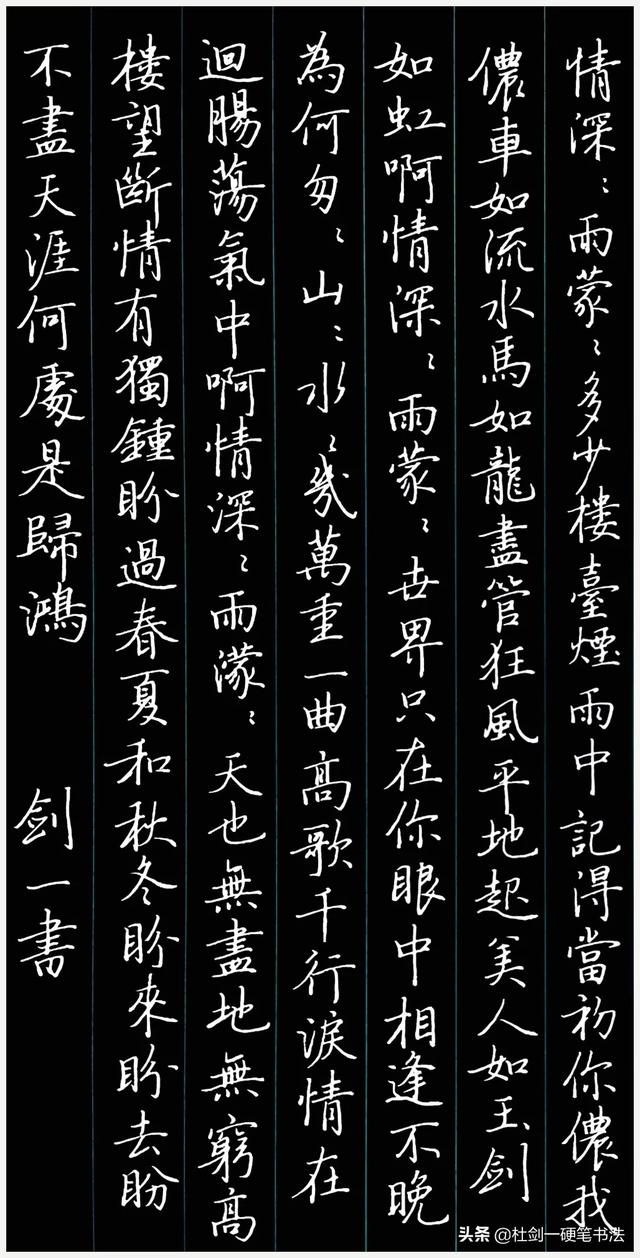 情深〻雨蒙〻多少樓臺煙雨中記得當初你儂我
儂車如流水馬如龍盡管狂風平地起美人如玉劍
如虹啊情深〻雨蒙〻世界只在你眼中相逢不晚
為何匆〻山〻水〻幾萬重一曲高歌千行淚情在
迴腸蕩氣中啊情深〻雨濛〻天也無盡地無窮高
樓望斷情有獨鍾盼過春夏和秋冬盼來盼去盼
不盡天涯何處是歸鴻
剑一書
头条 @杜剑一硬笔书法